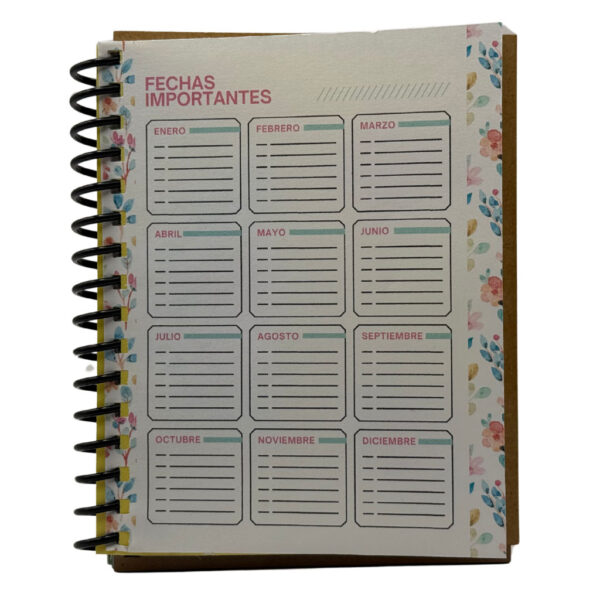 FECHAS
IMPORTANTES
ENERO
FEBRERO
MARZO
ABRIL
MAYO
JUNIO
JULIO
AGOSTO
SEPTIEMBRE
OCTUBRE
NOVIEMBRE
DICIEMBRE